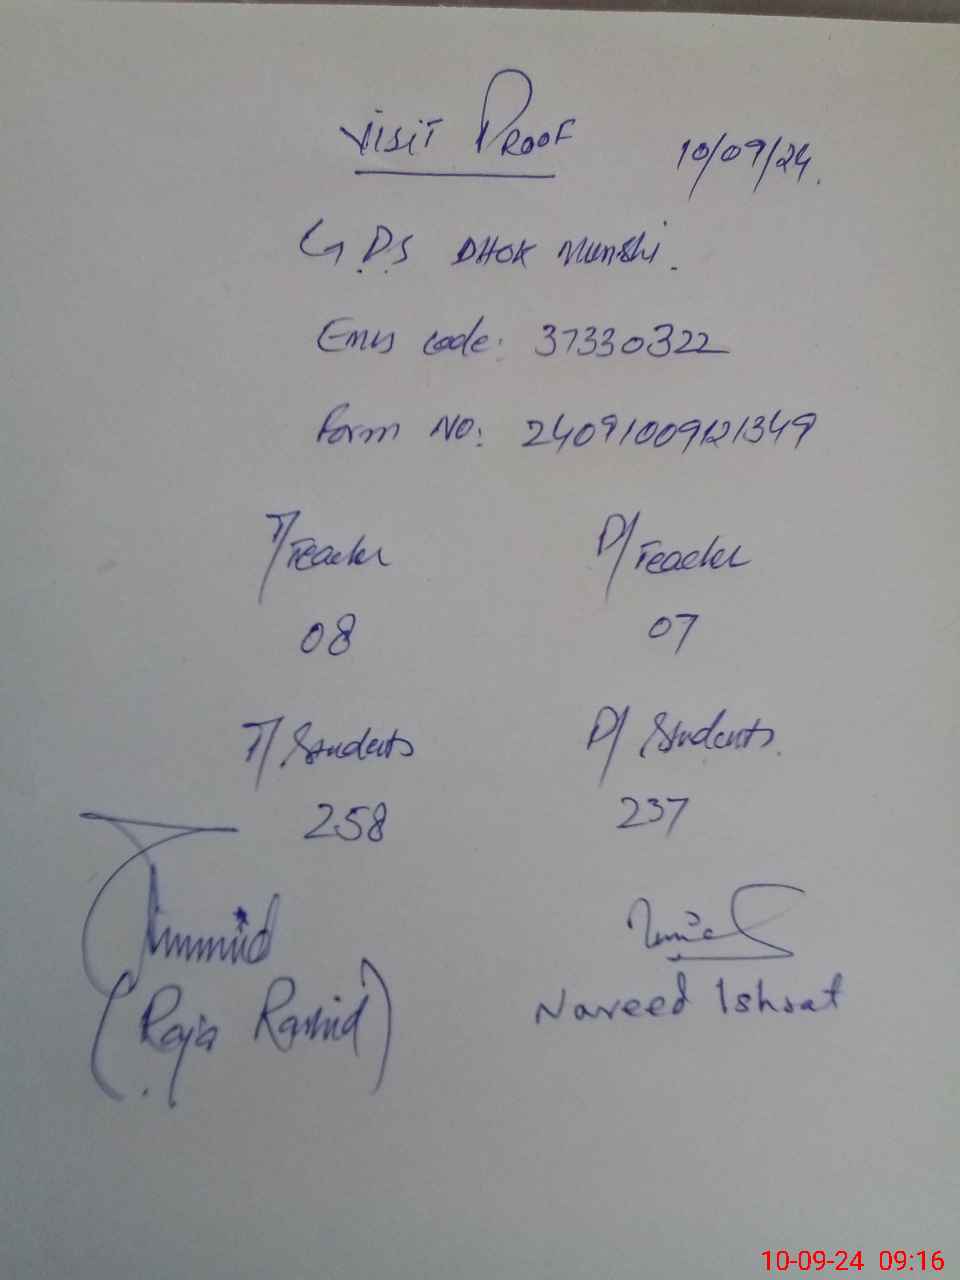 Visit Proof 10/09/24.
G.P.S DHOK Munshi.
Emis code: 37330322
Form No: 24091009121349
T/Teacher P/Teacher
08 07
T/Students P/Students.
258 237
(Raja Rashid) Naveed Ishrat
10-09-24 09:16